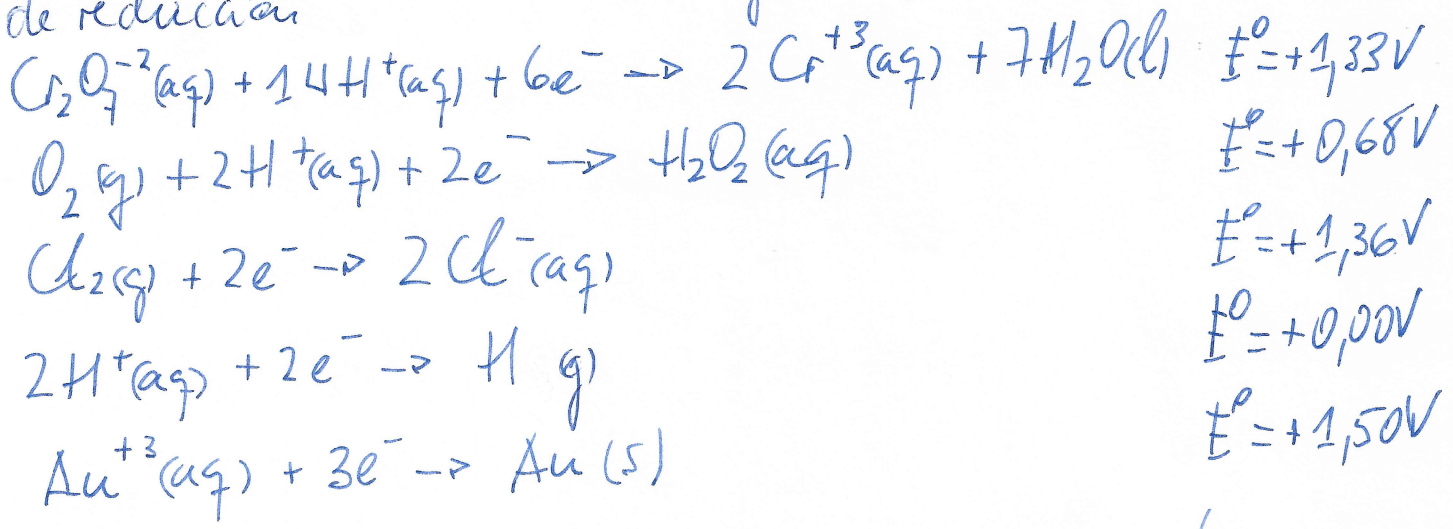 de reducción
Cr₂O₇⁻²(aq) + 14H⁺(aq) + 6e⁻ → 2Cr⁺³(aq) + 7H₂O(l) E⁰=+1,33V
O₂(g) + 2H⁺(aq) + 2e⁻ → H₂O₂(aq) E⁰=+0,68V
Cl₂(g) + 2e⁻ → 2Cl⁻(aq) E⁰=+1,36V
2H⁺(aq) + 2e⁻ → H g) E⁰=+0,00V
Au⁺³(aq) + 3e⁻ → Au(s) E⁰=+1,50V